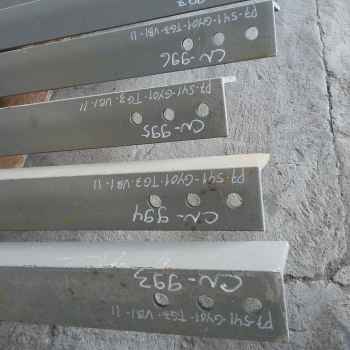 997
P7-S41-GY01-TG3-VB1-11
CN-996
P7-S41-GY01-TG3-VB1-11
CN-995
P7-S41-GY01-TG3-VB1-11
CN-994
CN-993
P7-S41-GY01-TG3-VB1-11